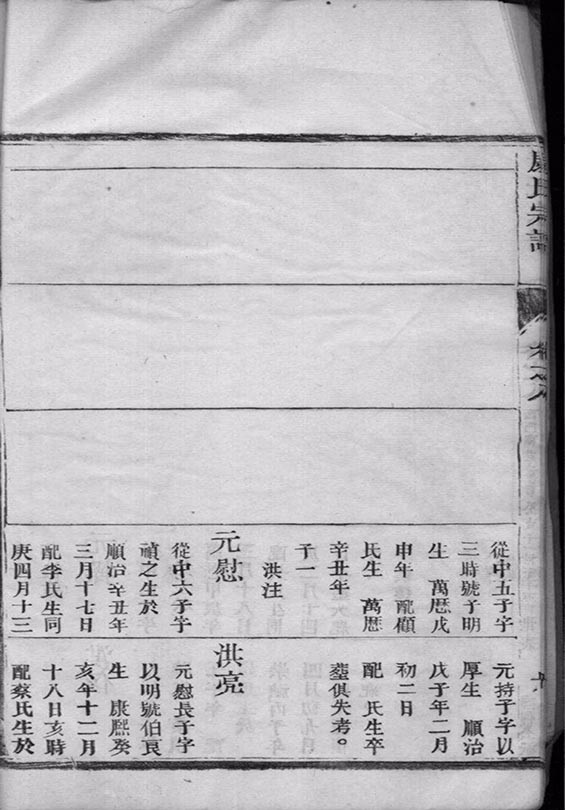 氏宗譜
從中五子字
三時號子明
生 萬曆戊
申年 配顧
氏生 萬曆
辛丑年
子一
洪注
元慰
從中六子字
禎之生於
順治辛丑年
三月十七日
配李氏生同
庚四月十三
元持子字以
厚生 順治
戊子年二月
初二日
配 氏生卒
塟俱失考。
洪亮
元慰長子字
以明號伯良
生 康熙癸
亥年十二月
十八日亥時
配蔡氏生於